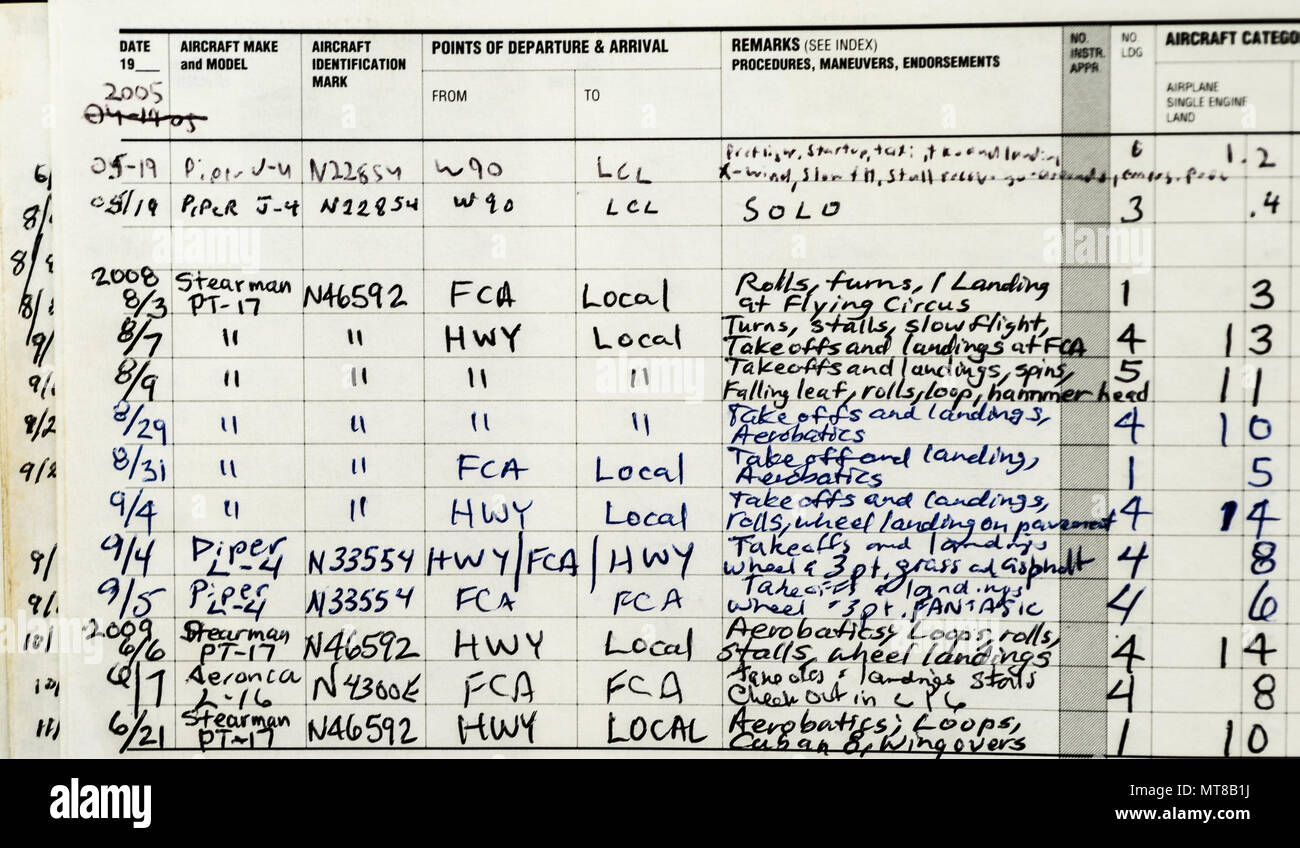 DATE 19__ AIRCRAFT MAKE and MODEL AIRCRAFT IDENTIFICATION MARK POINTS OF DEPARTURE & ARRIVAL REMARKS (SEE INDEX) PROCEDURES, MANEUVERS, ENDORSEMENTS NO. INSTR. APPR. NO. LDG AIRCRAFT CATEGO
FROM TO AIRPLANE SINGLE ENGINE LAND
2005
04-19-05
05-19 Piper J-4 N22854 W90 LCL Preflight, Startup, taxi, and landing 6 1.2
X-wind, Slow flt, Stall
05/19 PIPER J-4 N22854 W90 LCL SOLO 3 .4
2008
8/3 Stearman PT-17 N46592 FCA Local Rolls, turns, 1 Landing at Flying Circus 1 3
8/7 " " HWY Local Turns, stalls, slow flight, Takeoffs and landings at FCA 4 1 3
8/9 " " " " Takeoffs and landings, spins, Falling leaf, rolls, loop, hammer head 5 1 1
8/29 " " " " Take offs and landings, Aerobatics 4 1 0
8/31 " " FCA Local Takeoff and landing, Aerobatics 1 5
9/4 " " HWY Local Takeoffs and landings, rolls, wheel landing on pavement 4 1 4
9/4 Piper L-4 N33554 HWY/FCA/HWY Takeoffs and landings wheel & 3 pt, grass and asphalt 4 8
9/5 Piper L-4 N33554 FCA FCA Takeoffs & landings wheel & 3 pt. FANTASIC 4 6
2009
6/6 Stearman PT-17 N46592 HWY Local Aerobatics; Loops, rolls, stalls, wheel landings 4 1 4
6/7 Aeronca L-16 N4300E FCA FCA & landings stalls Check out in L16 4 8
6/21 Stearman PT-17 N46592 HWY LOCAL Aerobatics; Loops, Cuban 8, Wingovers 1 1 0
alamy
alamy
alamy
alamy
Image ID: MT8B1J
www.alamy.com